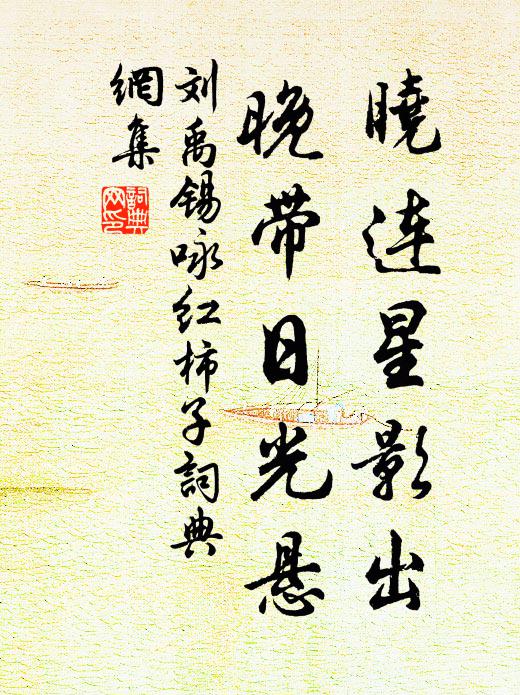 曉连星影出
晚带日光悬
刘禹锡咏红柿子詞典
網集
詞典
网印